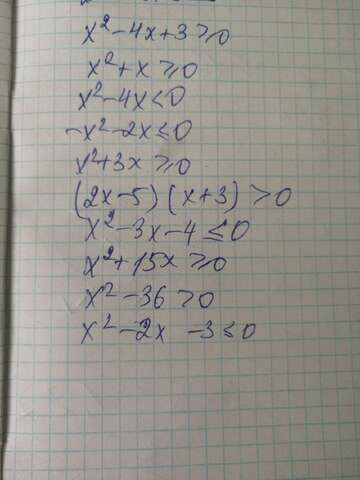 x²-4x+3≥0
x²+x≥0
x²-4x≤0
-x²-2x≤0
x²+3x≥0
(2x-5)(x+3)>0
x²-3x-4≤0
x²+15x≥0
x²-36>0
x²-2x -3≤0